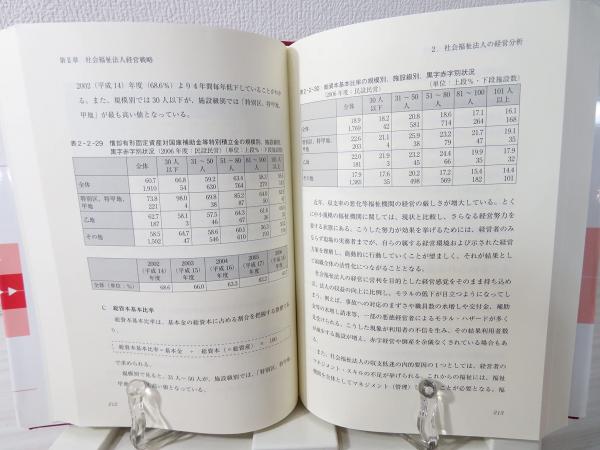 第Ⅱ章 社会福祉法人経営戦略
2002(平成14)年度(68.6%)より4年間毎年低下していることがわ
かる。また、規模別では30人以下が、施設級別では「特別区、特甲地、
甲地」が最も高い値となっている。
表2-2-29 償却有形固定資産対国庫補助金等特別積立金の規模別、施設級別、
黒字赤字別状況(2006年度:民設民営)(単位:上段%・下段施設数)
全体 30人以下 31~50人 51~80人 81~100人 101人以上
全体 60.7 66.8 59.2 63.4
1,910 54 630 764
特別区、特甲地、甲地 73.8 98.0 69.8 85.2
221 4 38 87
乙地 62.7 58.1 57.5 64.4
187 3 46 67
その他 58.5 64.7 58.6 60.1
1,502 47 546 610
2002(平成14)年度 2003(平成15)年度 2004(平成16)年度 2005(平成17)年度
全体(単位:%) 68.6 66.0 63.3
C 総資本基本比率
総資本基本比率は、基本金の総資本に占める割合を把握する指標であ
総資本基本比率=基本金 ÷ 総資本(=総資産) × 100
で求められる。
規模別で見ると、31人~50人が、施設級別では、「特別区、特甲地、
甲地」が最も高い値となっている。
212
2. 社会福祉法人の経営分析
表2-2-30 総資本基本比率の規模別、施設級別、黒字赤字別状況
(2006年度:民設民営) (単位:上段%・下段施設数)
全体 30人以下 31~50人 51~80人 81~100人 101人以上
全体 18.9 18.2 20.8 18.6 17.1 16.1
1,769 42 581 714 264 168
特別区、特甲地、甲地 22.6 21.1 25.9 23.2 21.7 19.1
203 4 38 79 47 35
乙地 22.0 21.9 23.3 23.2 17.1 21.1
181 3 45 66 35 32
その他 17.9 17.6 20.2 17.2 15.4 14.4
1,383 35 498 569 182 101
近年、収支率の悪化等福祉機関の経営の厳しさが増大している。とく
に中小規模の福祉機関に関しては、現状と比較し、さらなる経営努力を
要する状態にある。こうした努力が効果を挙げるためには、経営者のみ
ならず現場の実務者までが、自らの属する経営環境および示された経営
方策を理解し、能動的に行動していくことが望ましく、それが結果とし
て組織全体の活性化につながることとなる。
社会福祉法人の経営に営利を目的とした経営感覚をそのまま持ち込め
ば、法人の収益の向上に比例し、モラルの低下が目立つようになってし
まう。例えば、事故への対応のまずさや職員数の水増しや交付金、補助
金等の水増し請求等、一部の悪徳経営者によるモラル・ハザードが多く
見受けられる。こうした現象が利用者の不信を生み、その結果利用者数
が減少する施設が増え、赤字経営や倒産を余儀なくされている場合もあ
る。
また、社会福祉法人の収支低迷の内的要因の1つとしては、経営者の
マネジメント・スキルの不足が挙げられる。これからには、福祉
機関を主体としてマネジメント(管理)し ことが必要となる。福
213